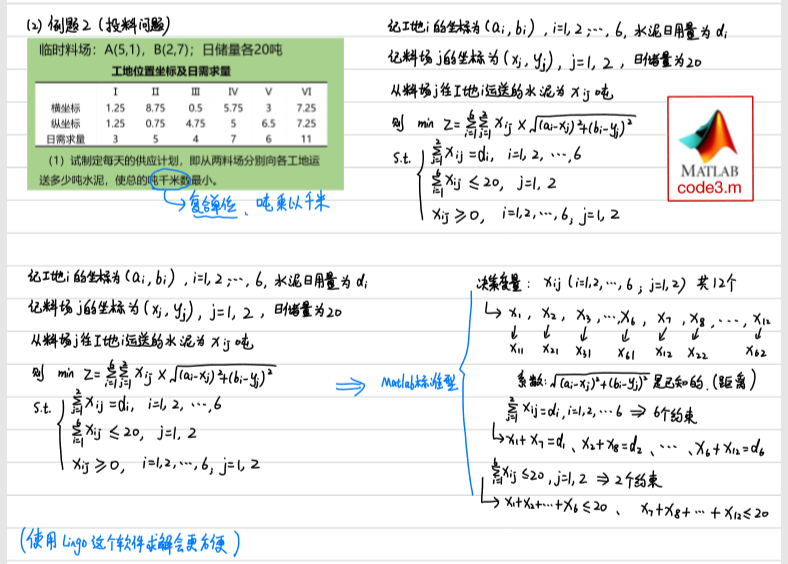 (2) 例题2（投料问题）
临时料场：A(5,1)，B(2,7)；日储量各20吨
工地位置坐标及日需求量
I II III IV V VI
横坐标 1.25 8.75 0.5 5.75 3 7.25
纵坐标 1.25 0.75 4.75 5 6.5 7.25
日需求量 3 5 4 7 6 11
（1）试制定每天的供应计划，即从两料场分别向各工地运
送多少吨水泥，使总的吨千米数最小。
→复合单位、吨乘以千米
记工地i的坐标为(ai, bi), i=1, 2, ⋯, 6, 水泥日用量为di
记料场j的坐标为(xj, yj), j=1, 2, 日储量为20
从料场j往工地i运送的水泥为xij吨
则 min Z=∑_{i=1}^{6}∑_{j=1}^{2} xij × √((ai-xj)²+(bi-yj)²)
s.t. { ∑_{j=1}^{2} xij = di, i=1, 2, ⋯, 6
∑_{i=1}^{6} xij ≤ 20, j=1, 2
xij ≥ 0, i=1, 2, ⋯, 6, j=1, 2
MATLAB
code3.m
记工地i的坐标为(ai, bi), i=1, 2, ⋯, 6, 水泥日用量为di
记料场j的坐标为(xj, yj), j=1, 2, 日储量为20
从料场j往工地i运送的水泥为xij吨
则 min Z=∑_{i=1}^{6}∑_{j=1}^{2} xij × √((ai-xj)²+(bi-yj)²)
s.t. { ∑_{j=1}^{2} xij = di, i=1, 2, ⋯, 6
∑_{i=1}^{6} xij ≤ 20, j=1, 2
xij ≥ 0, i=1,2, ⋯, 6, j=1, 2
⇒ Matlab标准型
决策变量： xij (i=1,2, ⋯, 6; j=1,2) 共12个
↳ x1, x2, x3, ⋯, x6, x7, x8, ⋯, x12
↓ ↓ ↓ ↓ ↓ ↓ ↓
x11 x21 x31 x61 x12 x22 x62
系数: √((ai-xj)²+(bi-yj)²) 是已知的.(距离)
∑_{j=1}^{2} xij=di, i=1,2, ⋯ 6 ⇒ 6个约束
↳x1+x7=d1、x2+x8=d2、⋯ 、x6+x12=d6
∑_{i=1}^{6} xij ≤20, j=1, 2 ⇒ 2个约束
↳ x1+x2+⋯+x6≤20、 x7+x8+⋯+x12≤20
(使用Lingo这个软件求解会更方便)